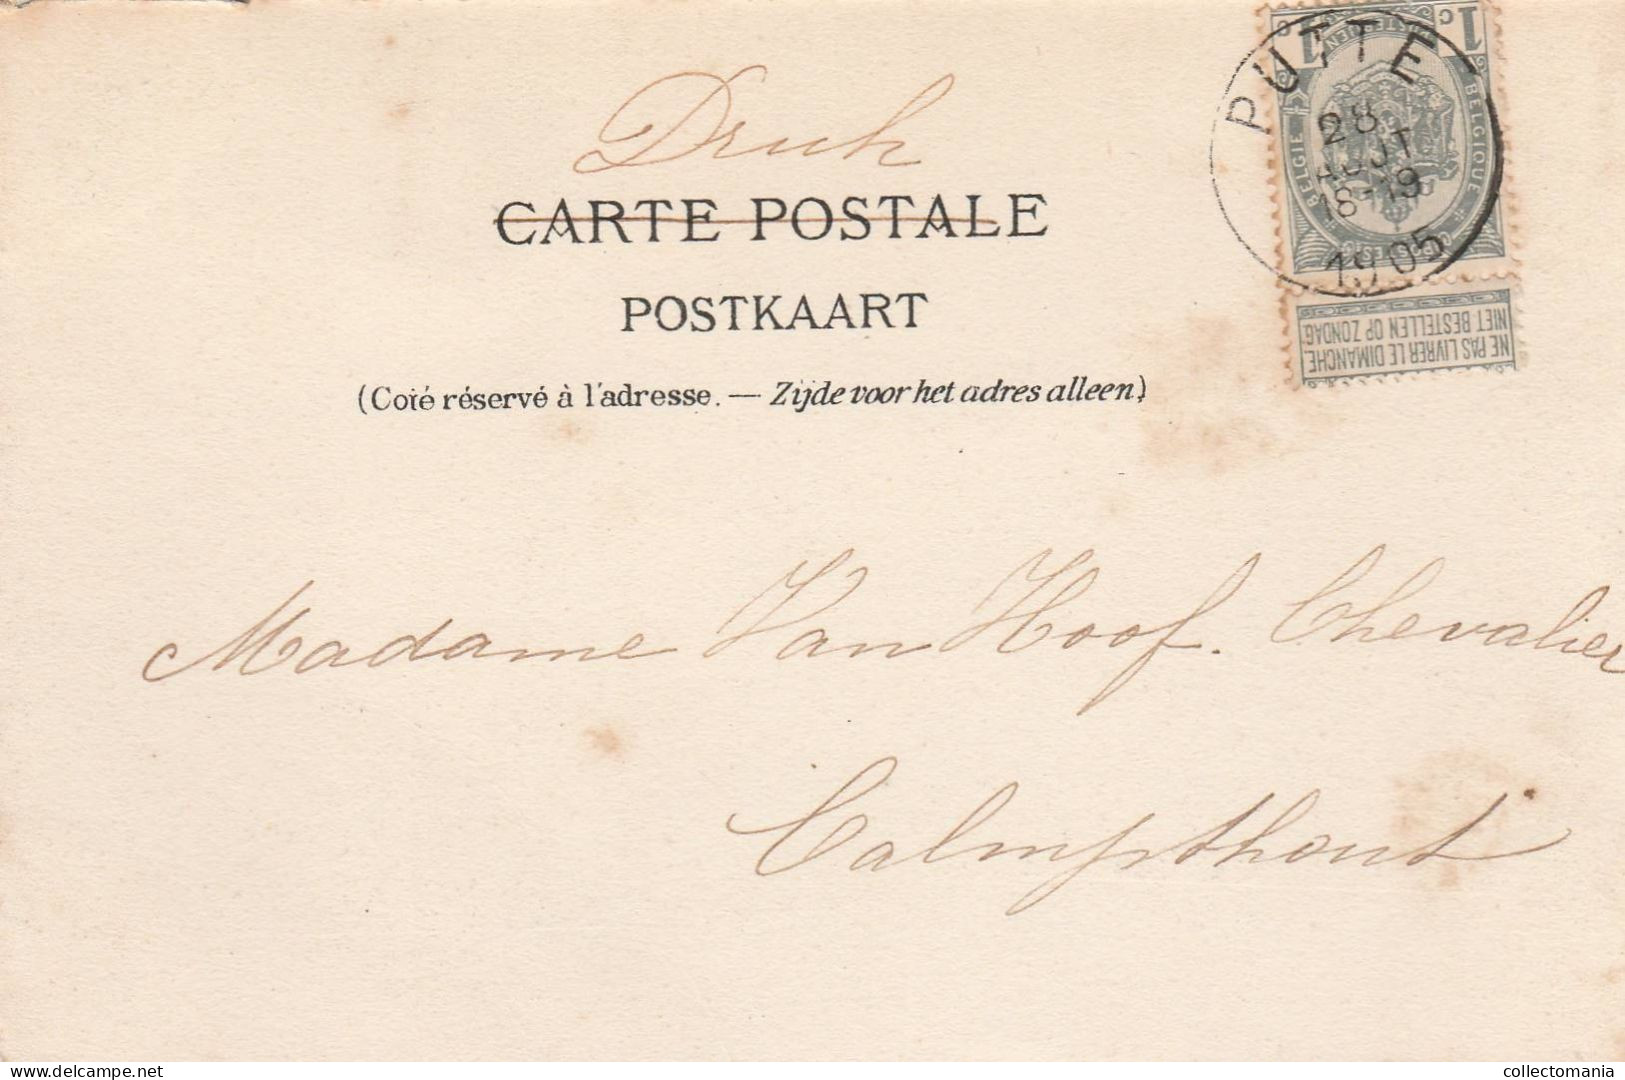 Druk
CARTE POSTALE
POSTKAART
(Coté réservé à l'adresse. — Zijde voor het adres alleen)
PUTTE
28
AOUT
18-19
1905
1 C C 1
BELGIE BELGIQUE
NE PAS LIVRER LE DIMANCHE.
NIET BESTELLEN OP ZONDAG.
Madame Van Hoof. Chevalier
Calmpthout
collectomania
delcampe.net